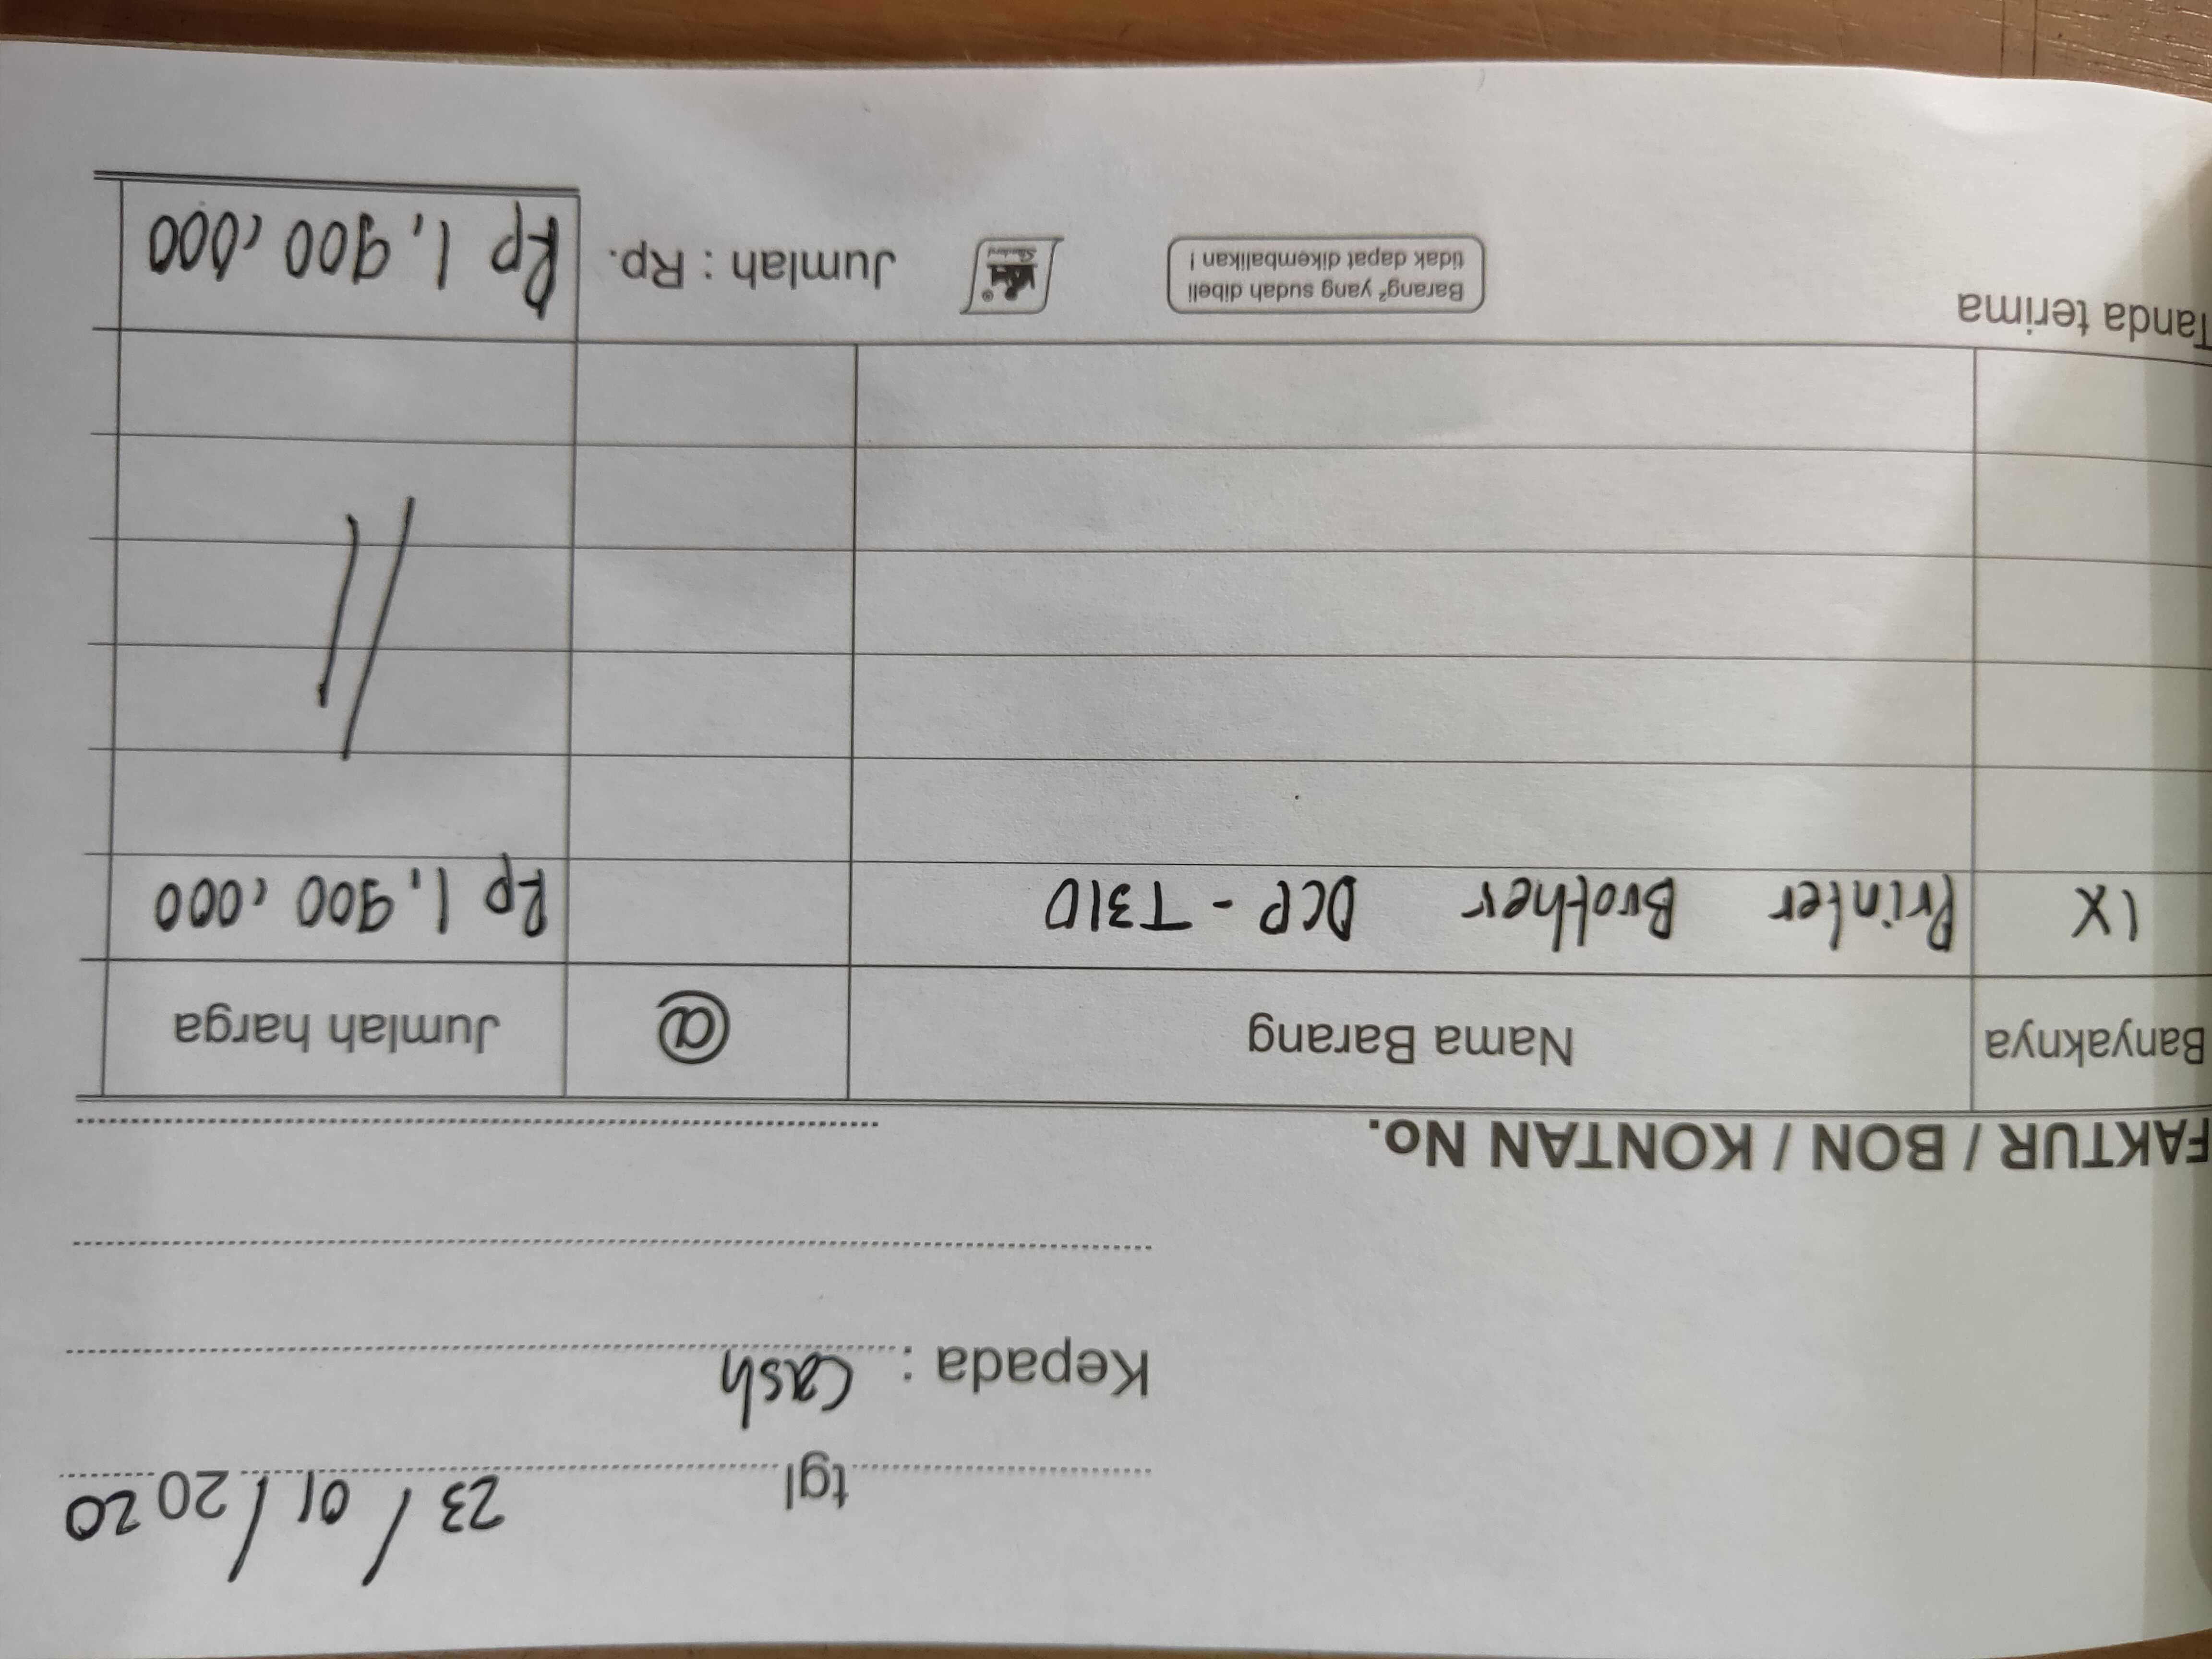 tgl 23 / 01 / 2020
Kepada : Cash
FAKTUR / BON / KONTAN No.
Banyaknya Nama Barang @ Jumlah harga
1X Printer Brother DCP - T310 Rp 1,900,000
Tanda terima
Barang² yang sudah dibeli
tidak dapat dikembalikan !
Jumlah : Rp. Rp 1,900,000